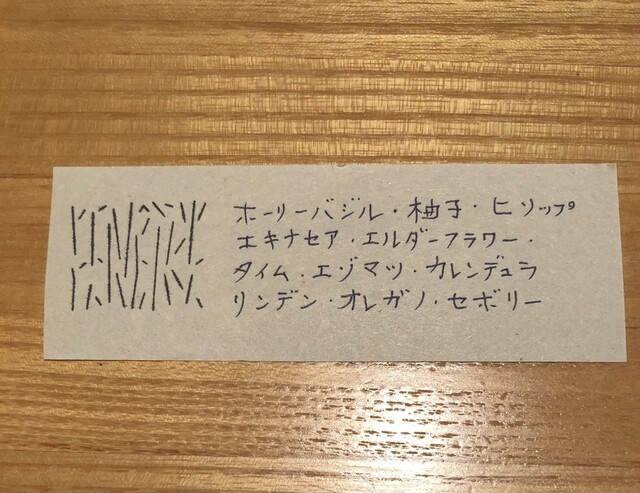 ホーリーバジル・柚子・ヒソップ
エキナセア・エルダーフラワー・
タイム・エゾマツ・カレンデュラ
リンデン・オレガノ・セボリー